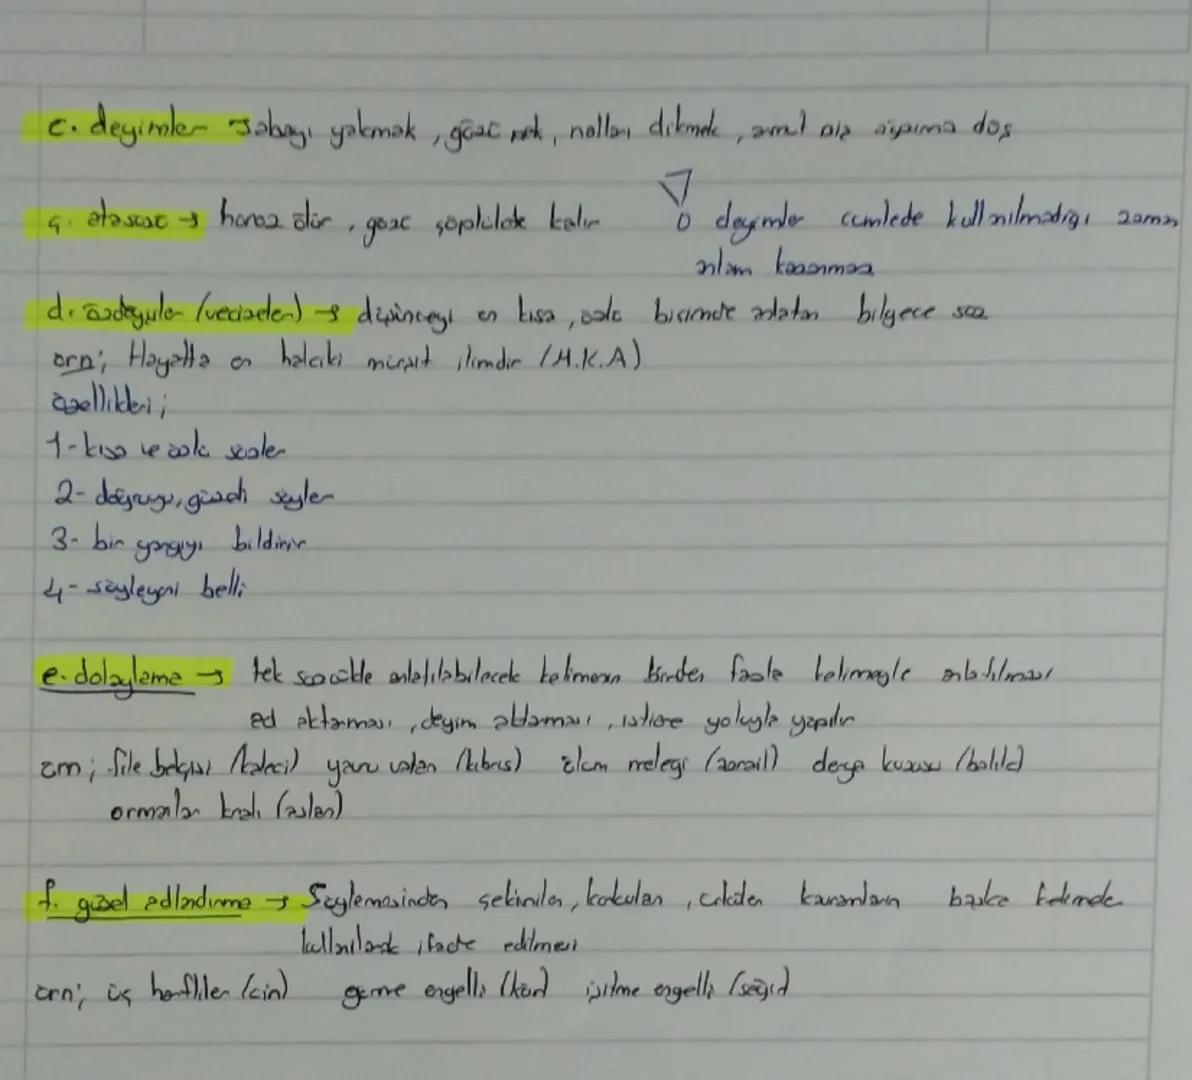 c. deyimler → abayı yakmak, göze mek, nalları dikmek,
ç. atasözü → horoz ölür, gözü çöplükte kalır
o deyimler cümlede kullanılmadığı zaman
anlam kazanmaz
d. özdeyişler (vecizeler) → düşünceyi en kısa, özlü biçimde anlatan bilgece söz
örn; Hayatta en hakiki mürşit ilimdir (M.K.A)
özellikleri;
1- kısa ve özlü sözler
2- doğruyu, güzeli söyler
3- bir yargıyı bildirir
4- söyleyeni belli
e. dolaylama → tek sözcükle anlatılabilecek kelimenin birden fazla kelimeyle anlatılması
ad aktarması, deyim aktarması, istiare yoluyla yapılır
örn; file bekçisi (kaleci) yavru vatan (kıbrıs) ölüm meleği (azrail) derya kuzusu (balık)
ormanlar kralı (aslan)
f. güzel adlandırma → Söylemesinden çekinilen, korkulan, ürkülen kavramların başka kelimelerle
kullanılarak ifade edilmesi
örn; üç harfliler (cin) görme engelli (kör) işitme engelli (sağır)